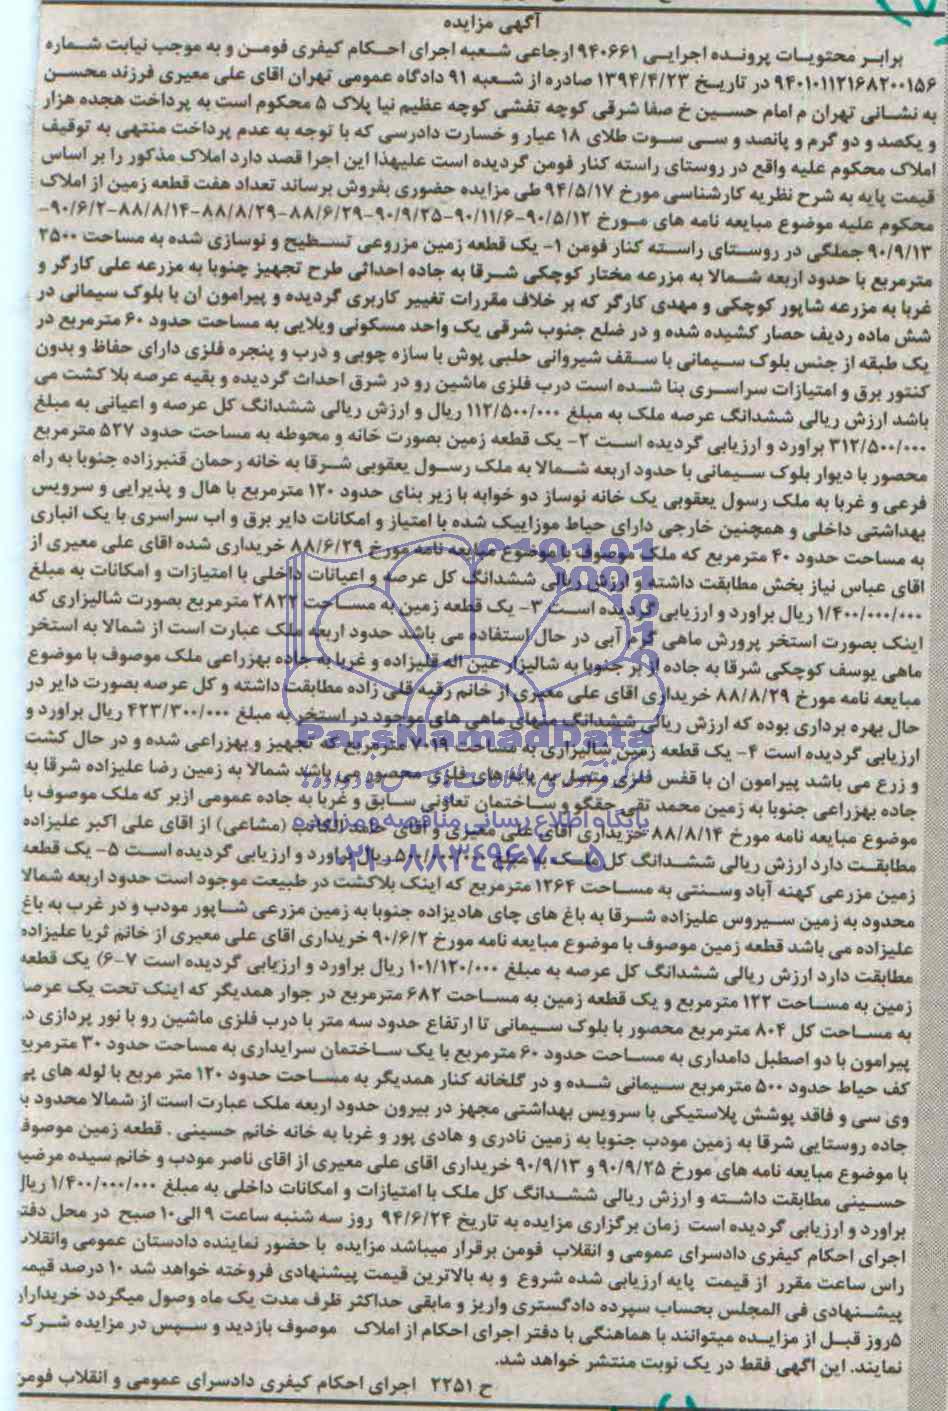 آگهی مزایده
برابر محتویات پرونده اجرایی ۹۴۰۶۶۱ ارجاعی شعبه اجرای احکام کیفری فومن و به موجب نیابت شماره
۹۴۰۱۰۱۱۲۱۶۸۲۰۰۱۵۶ در تاریخ ۱۳۹۴/۴/۲۳ صادره از شعبه ۹۱ دادگاه عمومی تهران اقای علی معیری فرزند محسن
به نشانی تهران م امام حسین خ صفا شرقی کوچه تفشی کوچه عظیم نیا پلاک ۵ محکوم است به پرداخت هجده هزار
و یکصد و دو گرم و پانصد و سی سوت طلای ۱۸ عیار و خسارت دادرسی که با توجه به عدم پرداخت منتهی به توقیف
املاک محکوم علیه واقع در روستای راسته کنار فومن گردیده است علیهذا این اجرا قصد دارد املاک مذکور را بر اساس
قیمت پایه به شرح نظریه کارشناسی مورخ ۹۴/۵/۱۷ طی مزایده حضوری بفروش برساند تعداد هفت قطعه زمین از املاک
محکوم علیه موضوع مبایعه نامه های مورخ ۹۰/۵/۱۲-۹۰/۱۱/۶-۹۰/۹/۲۵-۸۸/۶/۲۹-۸۸/۸/۲۹-۸۸/۸/۱۴-۹۰/۶/۲-
۹۰/۹/۱۳ جملگی در روستای راسته کنار فومن ۱- یک قطعه زمین مزروعی تسطیح و نوسازی شده به مساحت ۲۵۰۰
مترمربع با حدود اربعه شمالا به مزرعه مختار کوچکی شرقا به جاده احداثی طرح تجهیز جنوبا به مزرعه علی کارگر و
غربا به مزرعه شاپور کوچکی و مهدی کارگر که بر خلاف مقررات تغییر کاربری گردیده و پیرامون ان با بلوک سیمانی در
شش ماده ردیف حصار کشیده شده و در ضلع جنوب شرقی یک واحد مسکونی ویلایی به مساحت حدود ۶۰ مترمربع در
یک طبقه از جنس بلوک سیمانی با سقف شیروانی حلبی پوش با سازه چوبی و درب و پنجره فلزی دارای حفاظ و بدون
کنتور برق و امتیازات سراسری بنا شده است درب فلزی ماشین رو در شرق احداث گردیده و بقیه عرصه بلا کشت می
باشد ارزش ریالی ششدانگ عرصه ملک به مبلغ ۱۱۲/۵۰۰/۰۰۰ ریال و ارزش ریالی ششدانگ کل عرصه و اعیانی به مبلغ
۳۱۲/۵۰۰/۰۰۰ براورد و ارزیابی گردیده است ۲- یک قطعه زمین بصورت خانه و محوطه به مساحت حدود ۵۲۷ مترمربع
محصور با دیوار بلوک سیمانی با حدود اربعه شمالا به ملک رسول یعقوبی شرقا به خانه رحمان قنبرزاده جنوبا به راه
فرعی و غربا به ملک رسول یعقوبی یک خانه نوساز دو خوابه با زیر بنای حدود ۱۲۰ مترمربع با هال و پذیرایی و سرویس
بهداشتی داخلی و همچنین خارجی دارای حیاط موزاییک شده با امتیاز و امکانات دایر برق و اب سراسری با یک انباری
به مساحت حدود ۴۰ مترمربع که ملک موصوف با موضوع مبایعه نامه مورخ ۸۸/۶/۲۹ خریداری شده اقای علی معیری از
اقای عباس نیاز بخش مطابقت داشته و ارزش ریالی ششدانگ کل عرصه و اعیانات داخلی با امتیازات و امکانات به مبلغ
۱/۴۰۰/۰۰۰/۰۰۰ ریال براورد و ارزیابی گردیده است ۳- یک قطعه زمین به مساحت ۲۸۲۲ مترمربع بصورت شالیزاری که
اینک بصورت استخر پرورش ماهی گرم آبی در حال استفاده می باشد حدود اربعه ملک عبارت است از شمالا به استخر
ماهی یوسف کوچکی شرقا به جاده از بر جنوبا به شالیزار عین اله قلیزاده و غربا به جاده بهزراعی ملک موصوف با موضوع
مبایعه نامه مورخ ۸۸/۸/۲۹ خریداری اقای علی معیری از خانم رقیه قلی زاده مطابقت داشته و کل عرصه بصورت دایر در
حال بهره برداری بوده که ارزش ریالی ششدانگ منهای ماهی های موجود در استخر به مبلغ ۴۲۳/۳۰۰/۰۰۰ ریال براورد و
ارزیابی گردیده است ۴- یک قطعه زمین شالیزاری به مساحت ۷۰۱۹ مترمربع که تجهیز و بهزراعی شده و در حال کشت
و زرع می باشد پیرامون ان با قفس فلزی متصل به پایه های فلزی محصور می باشد شمالا به زمین رضا علیزاده شرقا به
جاده بهزراعی جنوبا به زمین محمد تقی حقگو و ساختمان تعاونی سابق و غربا به جاده عمومی ازبر که ملک موصوف با
موضوع مبایعه نامه مورخ ۸۸/۸/۱۴ خریداری اقای علی معیری و اقای حامد الکاتب (مشاعی) از اقای علی اکبر علیزاده
مطابقت دارد ارزش ریالی ششدانگ کل ملک به مبلغ ریال براورد و ارزیابی گردیده است ۵- یک قطعه
زمین مزرعی کهنه آباد وسنتی به مساحت ۱۲۶۴ مترمربع که اینک بلاکشت در طبیعت موجود است حدود اربعه شمالا
محدود به زمین سیروس علیزاده شرقا به باغ های چای هادیزاده جنوبا به زمین مزرعی شاپور مودب و در غرب به باغ
علیزاده می باشد قطعه زمین موصوف با موضوع مبایعه نامه مورخ ۹۰/۶/۲ خریداری اقای علی معیری از خانم ثریا علیزاده
مطابقت دارد ارزش ریالی ششدانگ کل عرصه به مبلغ ۱۰۱/۱۲۰/۰۰۰ ریال براورد و ارزیابی گردیده است ۷-۶) یک قطعه
زمین به مساحت ۱۲۲ مترمربع و یک قطعه زمین به مساحت ۶۸۲ مترمربع در جوار همدیگر که اینک تحت یک عرصه
به مساحت کل ۸۰۴ مترمربع محصور با بلوک سیمانی تا ارتفاع حدود سه متر با درب فلزی ماشین رو با نور پردازی در
پیرامون با دو اصطبل دامداری به مساحت حدود ۶۰ مترمربع با یک ساختمان سرایداری به مساحت حدود ۳۰ مترمربع
کف حیاط حدود ۵۰۰ مترمربع سیمانی شده و در گلخانه کنار همدیگر به مساحت حدود ۱۲۰ متر مربع با لوله های پی
وی سی و فاقد پوشش پلاستیکی با سرویس بهداشتی مجهز در بیرون حدود اربعه ملک عبارت است از شمالا محدود به
جاده روستایی شرقا به زمین مودب جنوبا به زمین نادری و هادی پور و غربا به خانه خانم حسینی . قطعه زمین موصوف
با موضوع مبایعه نامه های مورخ ۹۰/۹/۲۵ و ۹۰/۹/۱۳ خریداری اقای علی معیری از اقای ناصر مودب و خانم سیده مرضیه
حسینی مطابقت داشته و ارزش ریالی ششدانگ کل ملک با امتیازات و امکانات داخلی به مبلغ ۱/۴۰۰/۰۰۰/۰۰۰ ریال
براورد و ارزیابی گردیده است زمان برگزاری مزایده به تاریخ ۹۴/۶/۲۴ روز سه شنبه ساعت ۹ الی۱۰ صبح در محل دفتر
اجرای احکام کیفری دادسرای عمومی و انقلاب فومن برقرار میباشد مزایده با حضور نماینده دادستان عمومی وانقلاب
راس ساعت مقرر از قیمت پایه ارزیابی شده شروع و به بالاترین قیمت پیشنهادی فروخته خواهد شد ۱۰ درصد قیمت
پیشنهادی فی المجلس بحساب سپرده دادگستری واریز و مابقی حداکثر ظرف مدت یک ماه وصول میگردد خریداران
۵روز قبل از مزایده میتوانند با هماهنگی با دفتر اجرای احکام از املاک موصوف بازدید و سپس در مزایده شرکت
نمایند. این آگهی فقط در یک نوبت منتشر خواهد شد.
ح ۲۲۵۱ اجرای احکام کیفری دادسرای عمومی و انقلاب فومن
ParsNamadData
پایگاه اطلاع رسانی مناقصه و مزایده
۰۲۱-۸۸۳۴۹۶۷۰-۵